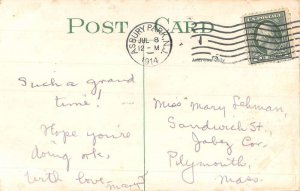 POST CARD
ASBURY PARK, N.J.
JUL 8
12-M
1914
Such a grand
time!
Hope you're
doing ok,
With love, Mary
Miss Mary Lehman,
Sandwich St,
Jabez Cor,
Plymouth,
Mass.